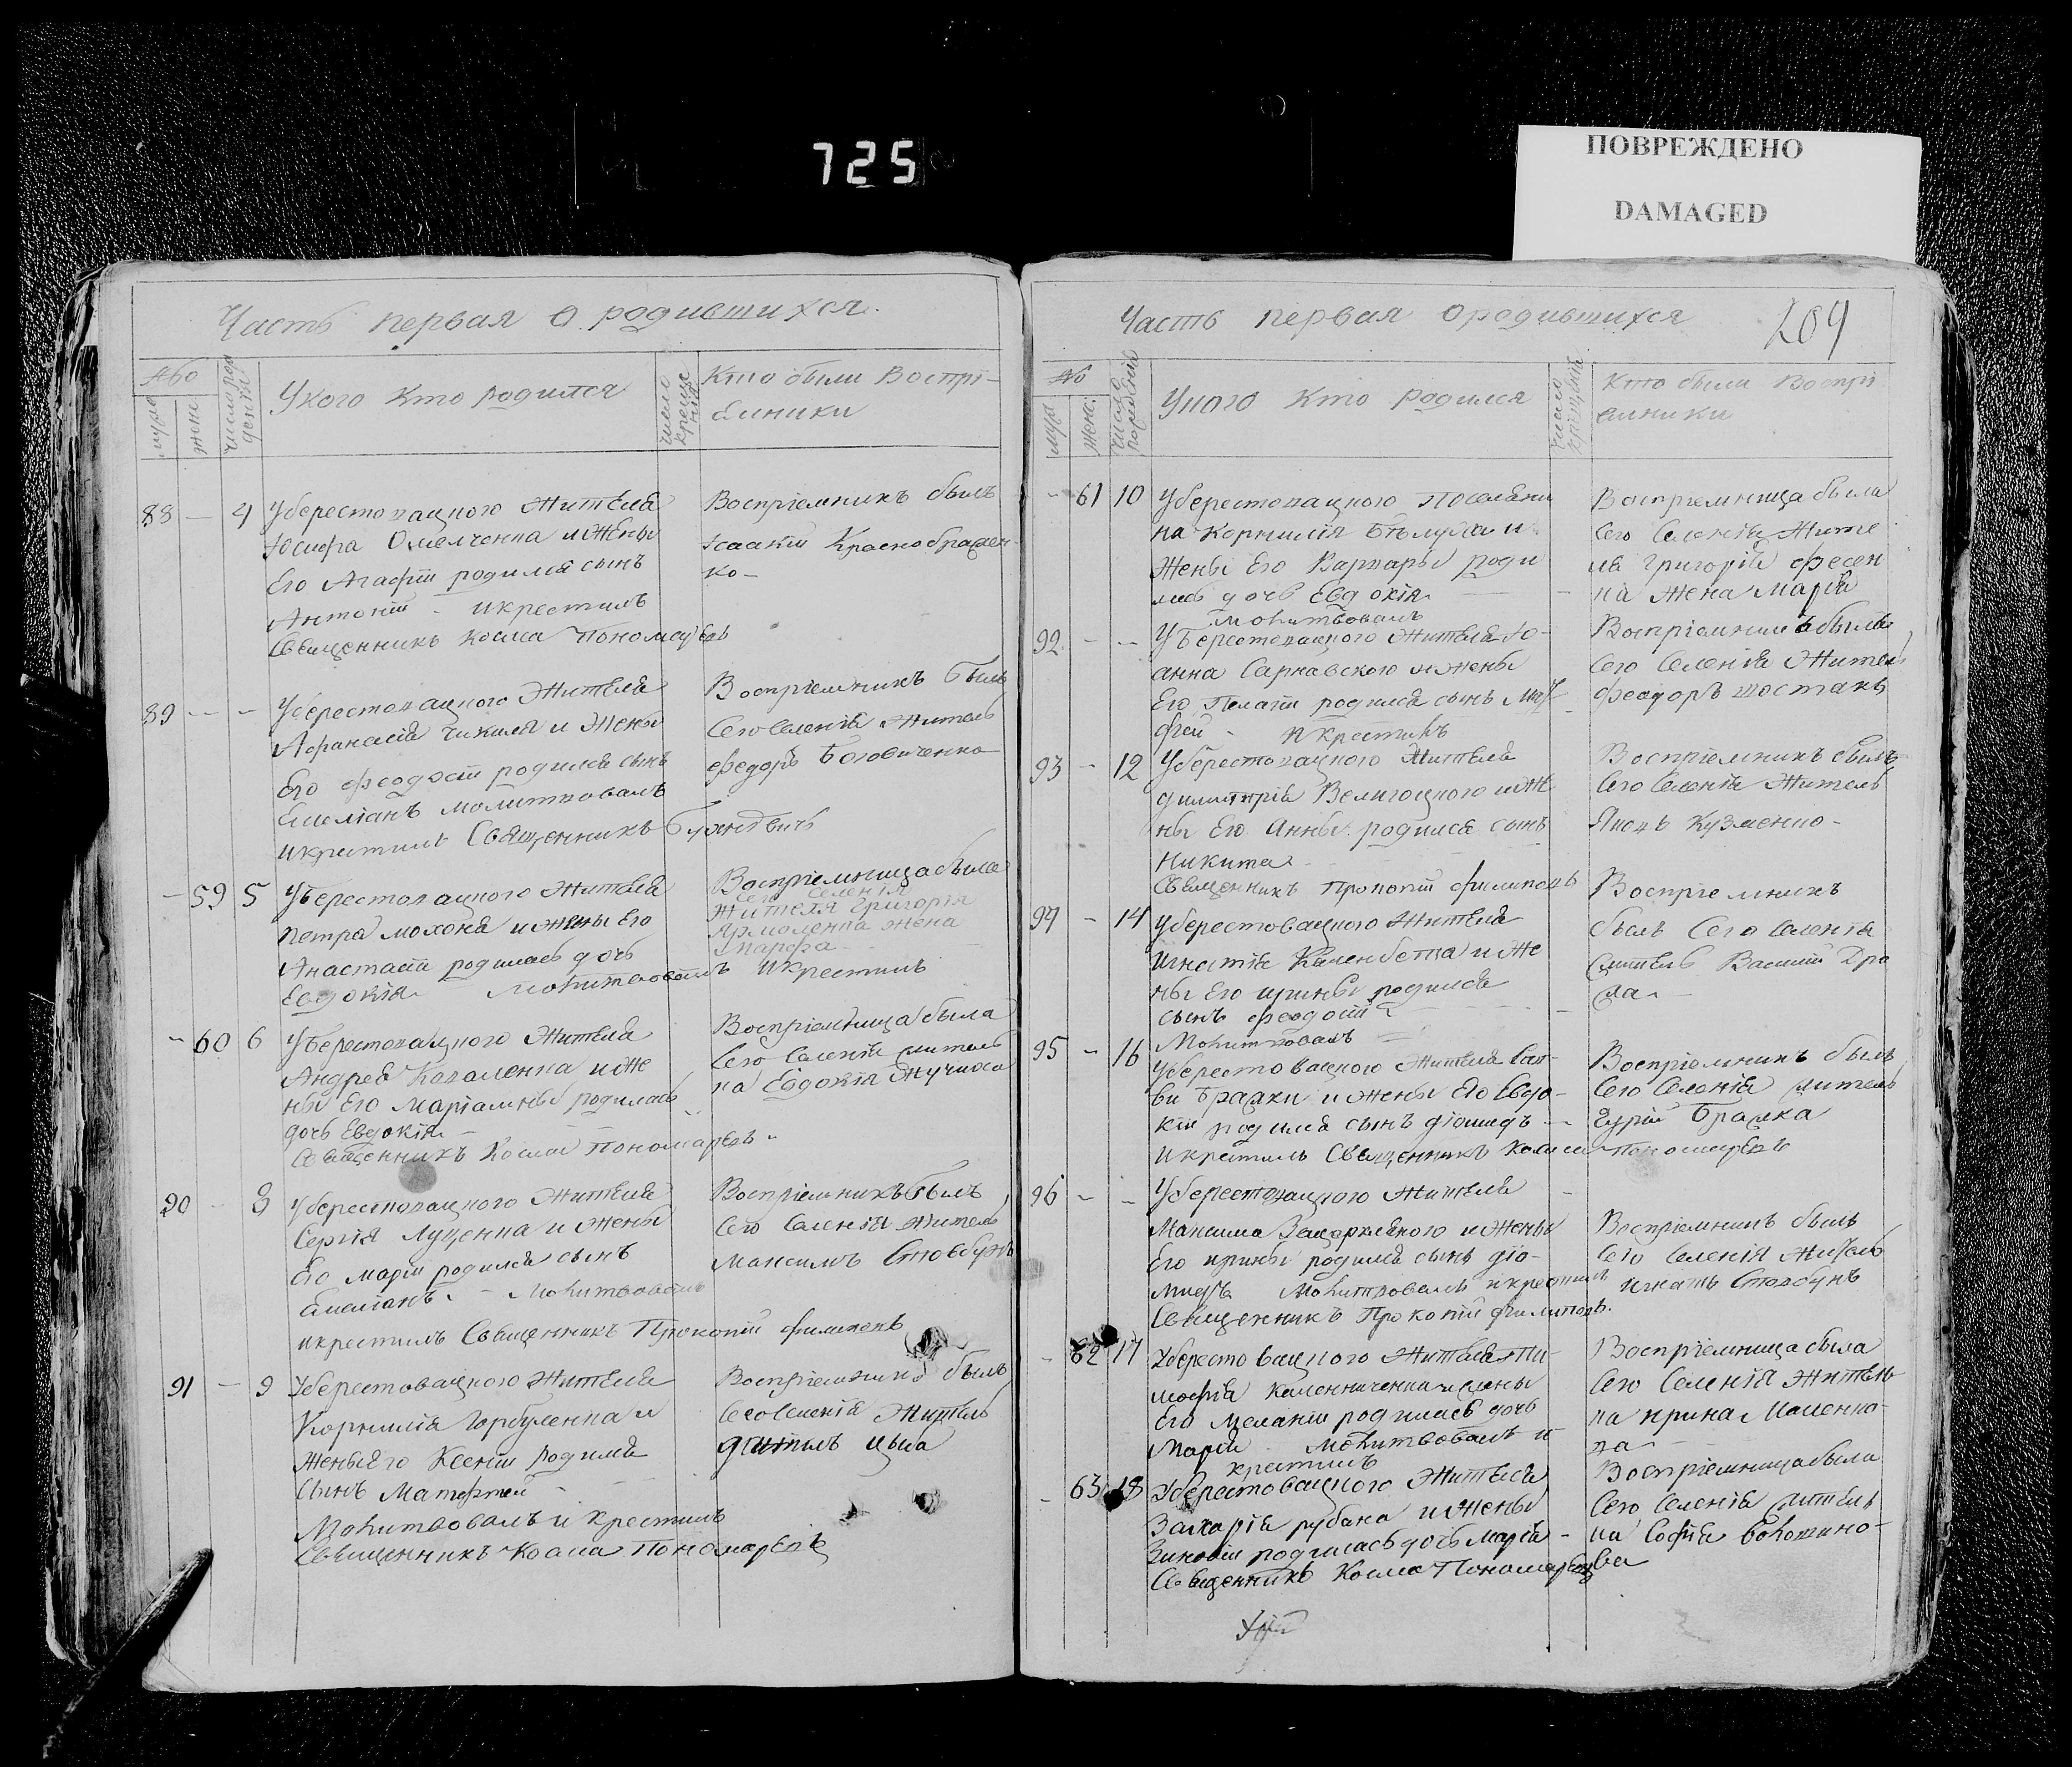 725
ПОВРЕЖДЕНО
DAMAGED
Часть первая о родившихся.
№
муж
жен
число рождения
У кого кто родился
число крещения
Кто были воспрі-
емники
88 — 4 У берестовацкого жителя
Іосифа Омелченка и жены
его Агафіи родился сынъ
Антоній - и крестилъ
Священникъ Косма Пономаревъ
Воспріемникъ былъ
Ісаакій Краснображен-
ко -
89 — - У берестовацкого жителя
Афанасія Чикиля и жены
его Феодосіи родился сынъ
Емеліанъ молитвовалъ
и крестилъ Священникъ
Воспріемникъ былъ
сего селенія житель
Федоръ Боговиченко
— 59 5 У берестовацкого жителя
Петра Мохоня и жены его
Анастасіи родилась дочь
Евдокія молитвовалъ и крестилъ
Воспріемница была
сего селенія
жителя Григорія
Ярмоленка жена
Марфа -
- 60 6 У берестовацкого жителя
Андрея Коваленка и же
ны его Маріамны родилась
дочь Евдокія -
Священникъ Косма Пономаревъ
Воспріемница была
сего селенія житель
ка Евдокія
90 - 8 У берестовацкого жителя
Сергія Луценка и жены
его Маріи родился сынъ
Емеліанъ. - Молитвовалъ
и крестилъ Священникъ Прокопій Филиповъ
Воспріемникъ былъ
сего селенія житель
Максимъ Стовбунъ
91 — 9 У берестовацкого жителя
Корнилія Горбуленка и
жены его Ксеніи родился
сынъ Матфей -
Молитвовалъ и крестилъ
Священникъ Косма Пономаревъ
Воспріемникъ былъ
сего селенія житель
Часть первая о родившихся
209
№
муж
жен.
число рожденія
У кого кто родился
число крещенія
Кто были воспрі
емники
- 61 10 У берестовацкого поселяни
на Корнилія Белухи и
жены его Варвары роди
лась дочь Евдокія -
молитвовалъ
Воспріемница была
сего селенія жите
ля Григорія Фесен
ка жена Марія
92 - - У берестовацкого жителя Іо-
анна Сарнавского и жены
его Пелагіи родился сынъ Мат
фей - и крестилъ
Воспріемникъ былъ
сего селенія житель
Феодоръ Шостакъ
93 - 12 У берестовацкого жителя
Димитрія Велигоцкого и же
ны его Анны родился сынъ
Никита
Священникъ Прокопій Филиповъ
Воспріемникъ былъ
сего селенія житель
Яковъ Кузменко -
94 - 14 У берестовацкого жителя
Игнатія и же
ны его Ирины родился
сынъ Феодосій -
Молитвовалъ
Воспріемникъ
былъ сего селенія
житель Василій
95 - 16 У берестовацкого жителя Сав-
ви Бражки и жены его Евдо-
кіи родился сынъ Діомидъ -
и крестилъ Священникъ Косма Пономаревъ
Воспріемникъ былъ
сего селенія житель
Гурій Бражка
96 - - У берестовацкого жителя
Максима и жены
его Ирины родился сынъ Діо-
мидъ Молитвовалъ и крестилъ
Священникъ Прокопій Филиповъ.
Воспріемникъ былъ
сего селенія житель
Игнатъ Стовбунъ
- 62 17 У берестовацкого жителя Ти-
мофія Каленниченка и жены
его Меланіи родилась дочь
Марія молитвовалъ и
крестилъ
Воспріемница была
сего селенія житель
ка Ирина
- 63 18 У берестовацкого жителя
Захарія Рубана и жены
Зиновіи родилась дочь Марія -
Священникъ Косма Пономаревъ
Воспріемница была
сего селенія житель
ка Софія